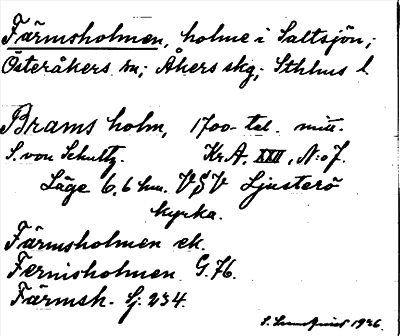 Färmsholmen, holme i Saltsjön;
Österåkers sn; Åkers skg; Sthlms l.
Brams holm, 1700-tal. mitt.
S. von Schultz. Kr.A. XXII, N:o 7.
Läge 6,6 km. VSV Ljusterö
kyrka.
Färmsholmen ek.
Fernisholmen G. 76.
Färmsh. Sj. 234.
1926.